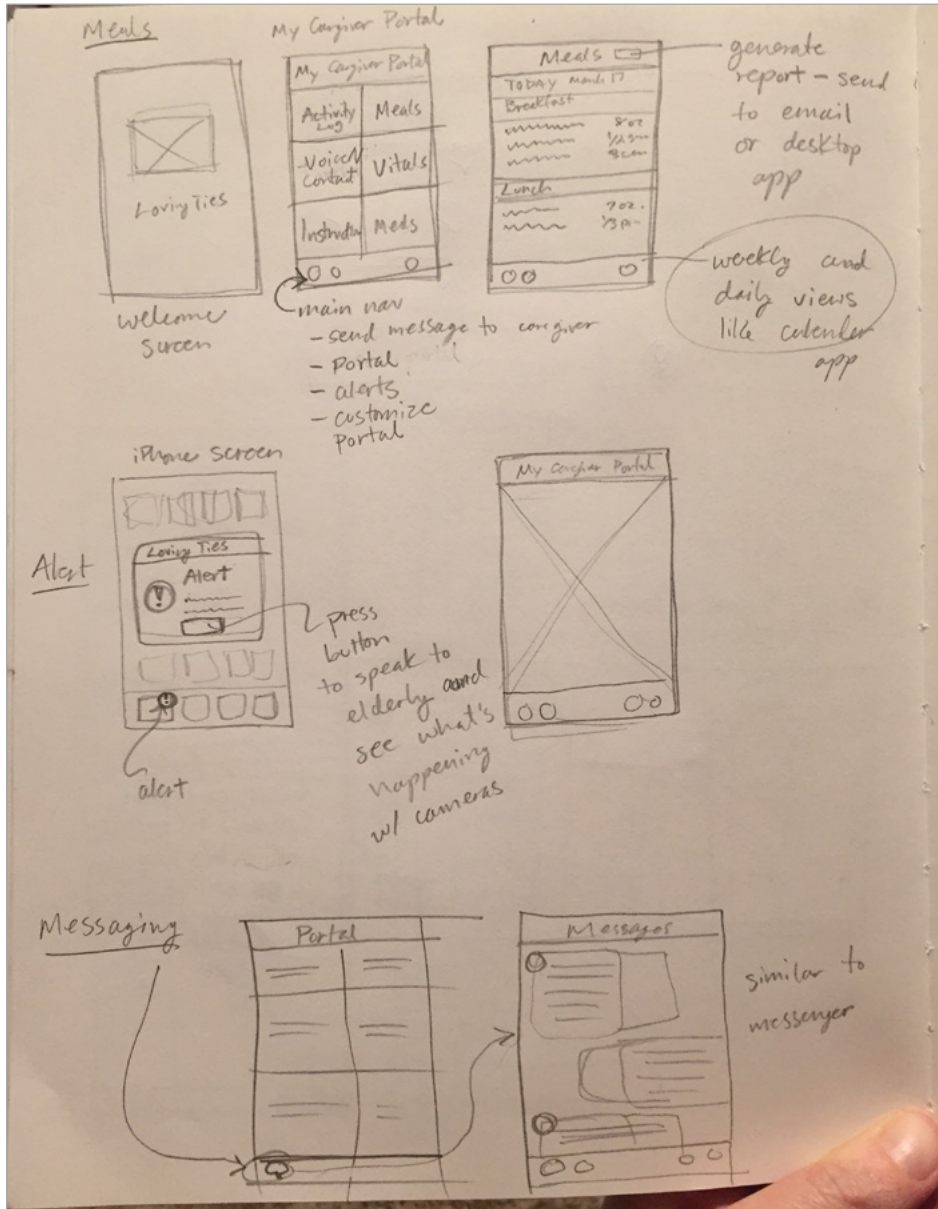 Meals
Loving Ties
welcome
screen
My Cargiver Portal
My Cargiver Portal
Activity
Log
Meals
Voice/V
Contact
Vitals
Meds
main nav
- send message to caregiver
- Portal
- alerts
- customize
Portal
Meals
TODAY March 17
Breakfast
8 oz
Lunch
7 oz.
generate
report - send
to email
or desktop
app
weekly and
daily views
like calender
app
Alert
iPhone screen
Loving Ties
Alert
!
!
alert
press
button
to speak to
elderly and
see what's
happening
w/ cameras
My Cargiver Portal
Messaging
Portal
Messages
similar to
messenger